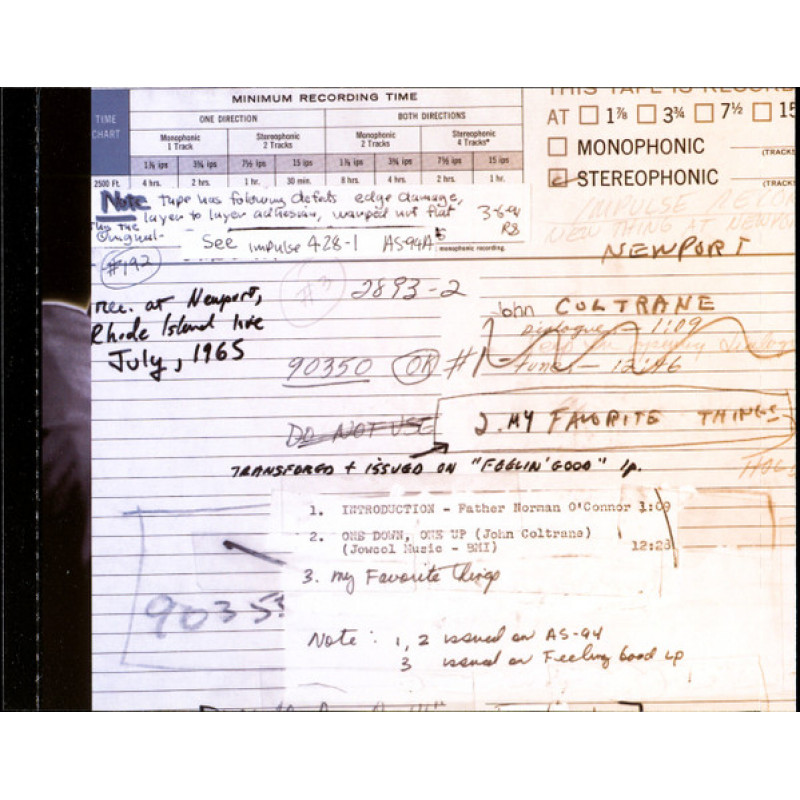 MINIMUM RECORDING TIME
TIME CHART
ONE DIRECTION
BOTH DIRECTIONS
Monophonic 1 Track
Stereophonic 2 Tracks
Monophonic 2 Tracks
Stereophonic 4 Tracks*
1⅞ ips 3¾ ips 7½ ips 15 ips 1⅞ ips 3¾ ips 7½ ips 15 ips
2500 Ft. 4 hrs. 2 hrs. 1 hr. 30 min. 8 hrs. 4 hrs. 2 hrs. 1 hr.
THIS TAPE IS RECORD
AT 1⅞ 3¾ 7½ 15
MONOPHONIC
(TRACK
STEREOPHONIC
(TRACKS
Note tape has following defects edge damage,
layer to layer adhesion, warped not flat
3-6-91
RS
This the
Original-
See impulse 428-1 AS94A
monophonic recording.
IMPULSE RECOR
NEW THING AT NEWPO
NEWPORT
#192
#3
2893-2
Rec. at Newport,
Rhode Island live
July, 1965
John COLTRANE
Dialogue 1:09
tune - 12:46
90350 OR #1
DO NOT USE
2. MY FAVORITE THINGS
TRANSFORED + ISSUED ON "FEELIN' GOOD" lp.
HOL
1. INTRODUCTION - Father Norman O'Connor 1:09
2. ONE DOWN, ONE UP (John Coltrane)
(Jowcol Music - BMI) 12:28
3. My Favorite Things
9035
Note: 1, 2 issued on AS-94
3 issued on Feeling Good LP